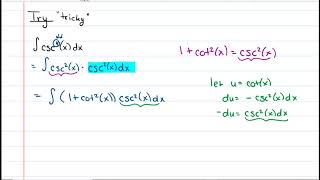 Try "tricky"
∫ csc⁴(x) dx
= ∫ csc²(x) · csc²(x) dx
1 + cot²(x) = csc²(x)
= ∫ (1 + cot²(x)) csc²(x) dx
let u = cot(x)
du = - csc²(x) dx
-du = csc²(x) dx